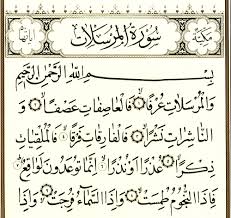 مكية سُورَةُ الْمُرْسَلَاتِ
بِسْمِ اللَّهِ الرَّحْمَٰنِ الرَّحِيمِ
وَالْمُرْسَلَاتِ عُرْفًا ۝ فَالْعَاصِفَاتِ عَصْفًا ۝ وَ
النَّاشِرَاتِ نَشْرًا ۝ فَالْفَارِقَاتِ فَرْقًا ۝ فَالْمُلْقِيَاتِ
ذِكْرًا ۝ عُذْرًا أَوْ نُذْرًا ۝ إِنَّمَا تُوعَدُونَ لَوَاقِعٌ ۝
فَإِذَا النُّجُومُ طُمِسَتْ ۝ وَإِذَا السَّمَاءُ فُرِجَتْ ۝ وَإِذَا